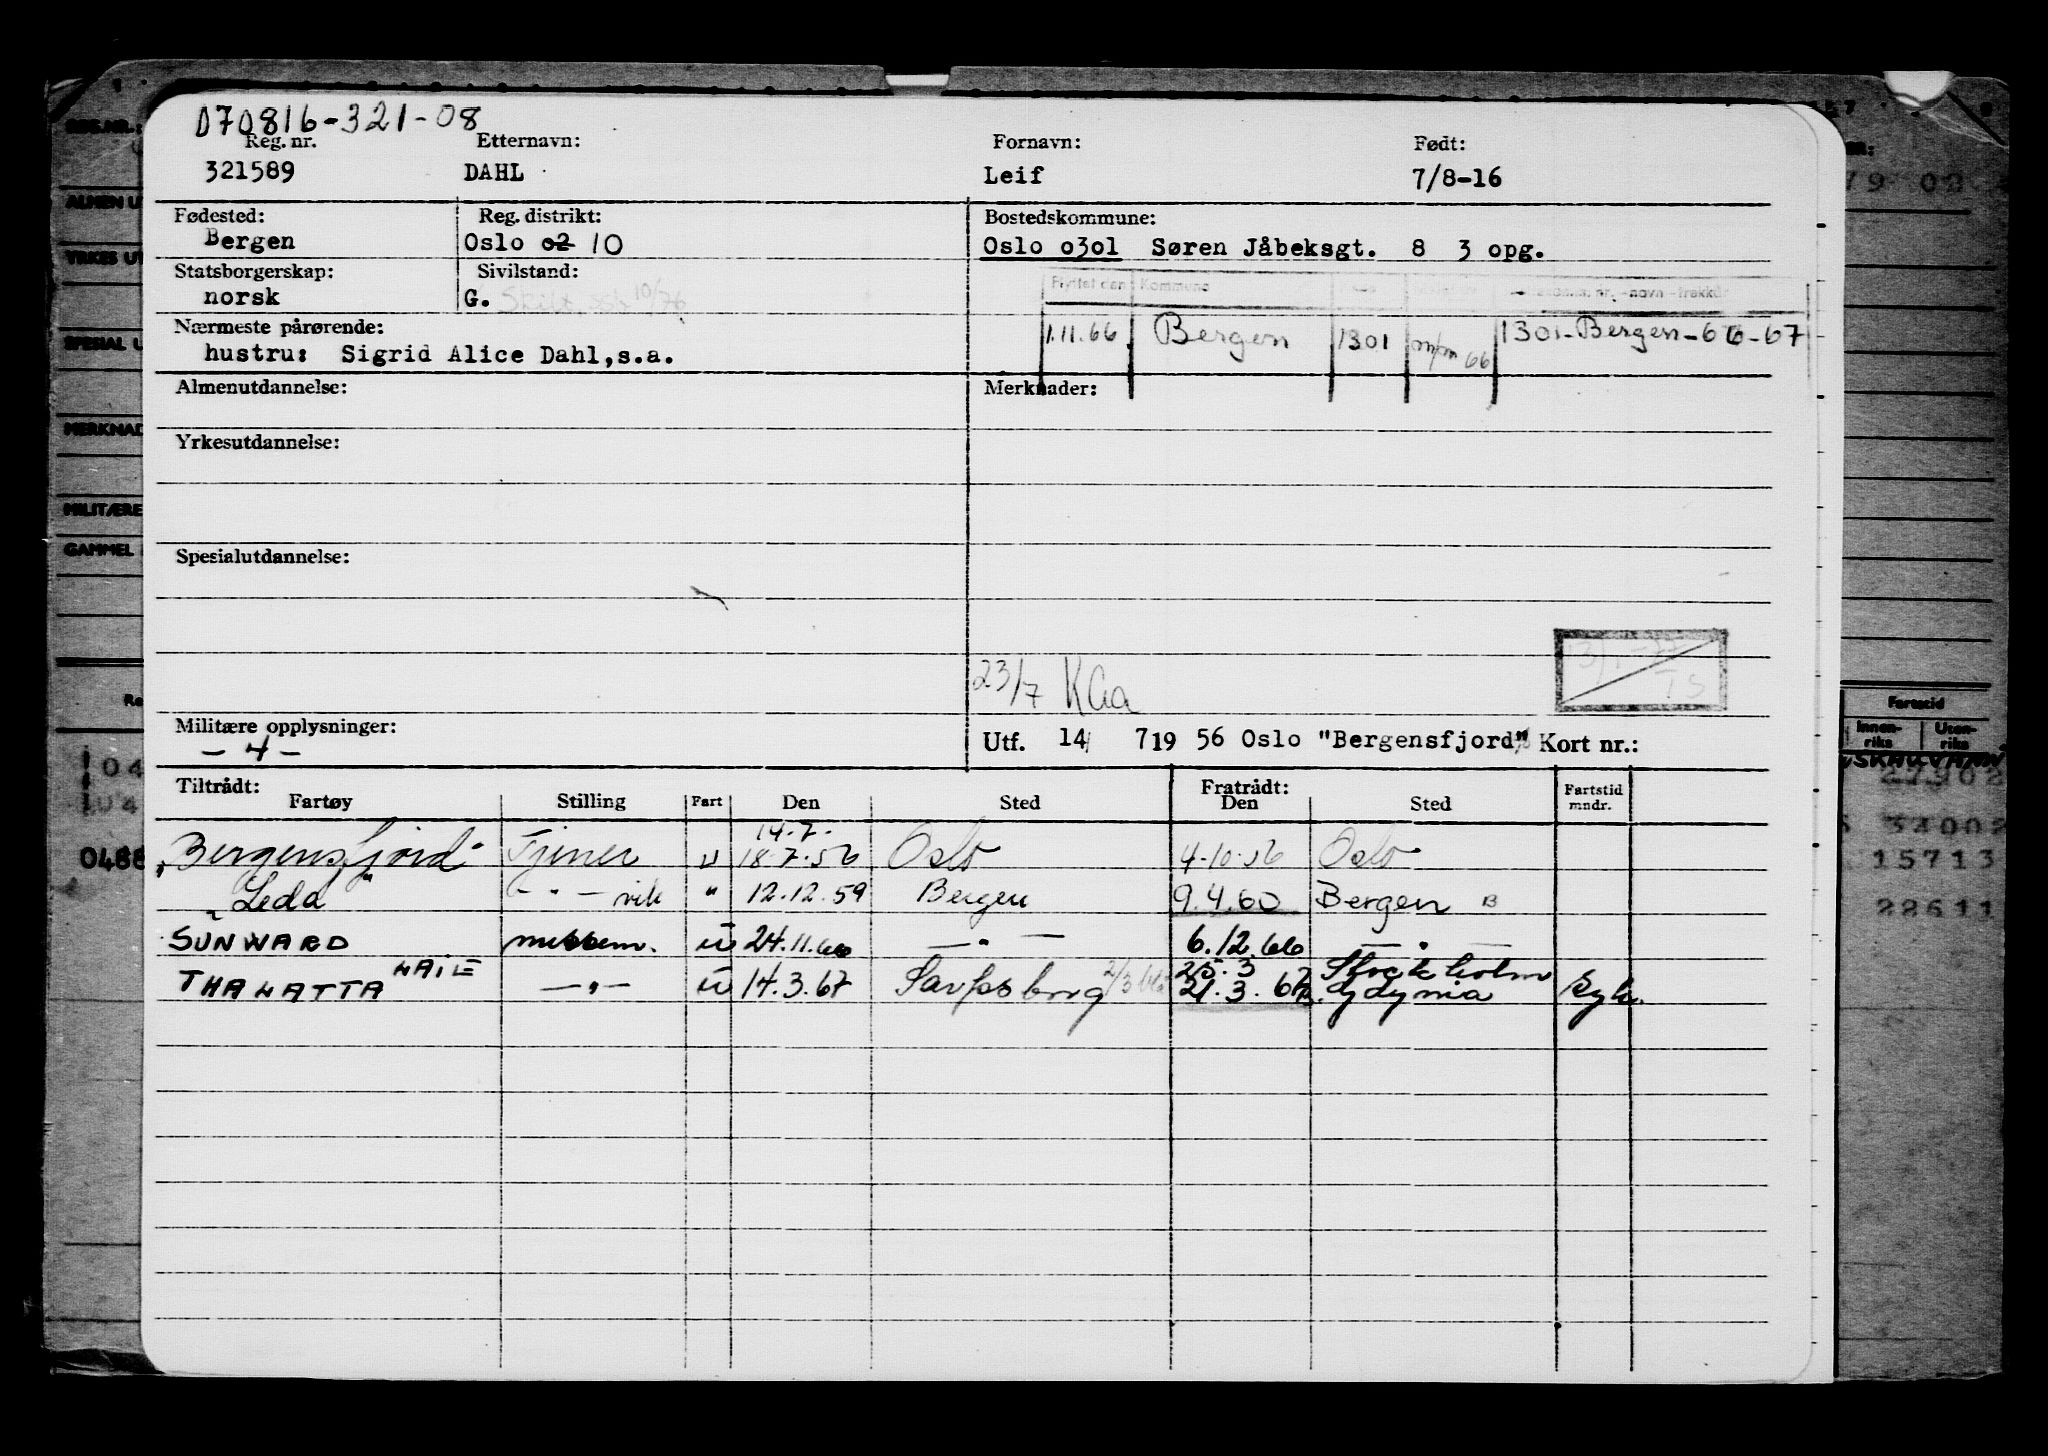 070816-321-08
Reg. nr. Etternavn: Fornavn: Født:
321589 DAHL Leif 7/8-16
Fødested: Reg. distrikt: Bostedskommune:
Bergen Oslo 02 10 Oslo 0301 Søren Jåbeksgt. 8 3 opg.
Statsborgerskap: Sivilstand:
norsk G. Skilt 10/76
Flyttet den Kommune
Nærmeste pårørende:
hustru: Sigrid Alice Dahl,s.a.
1.11.66 Bergen 1301 66 1301-Bergen-66-67
Almenutdannelse: Merknader:
Yrkesutdannelse:
Spesialutdannelse:
23/7 KAa
Militære opplysninger:
- 4 -
Utf. 14/ 719 56 Oslo "Bergensfjord" Kort nr.:
Tiltrådt: Fratrådt:
Fartøy Stilling Fart Den Sted Den Sted Fartstid mndr.
14.7.
"Bergensfjord" Tjener u 18.7.56 Oslo 4.10.56 Oslo
"Leda" - " - vik " 12.12.59 Bergen 9.4.60 Bergen B
SUNWARD messem. u 24.11.66 - " - 6.12.66 - " -
THALATTA u 14.3.67 Sarpsborg 25.3 Stockholm
- " - 21.3.67 Gdynia Syk.
REG.NR.:
ALMEN U
YRKES UT
SPESIAL U
MERKNAD
MILITÆRE
GAMMEL
Re
104
04
0488
79 02
Fartstid
Innen-riks Uten-riks
27902
34002
15713
22611